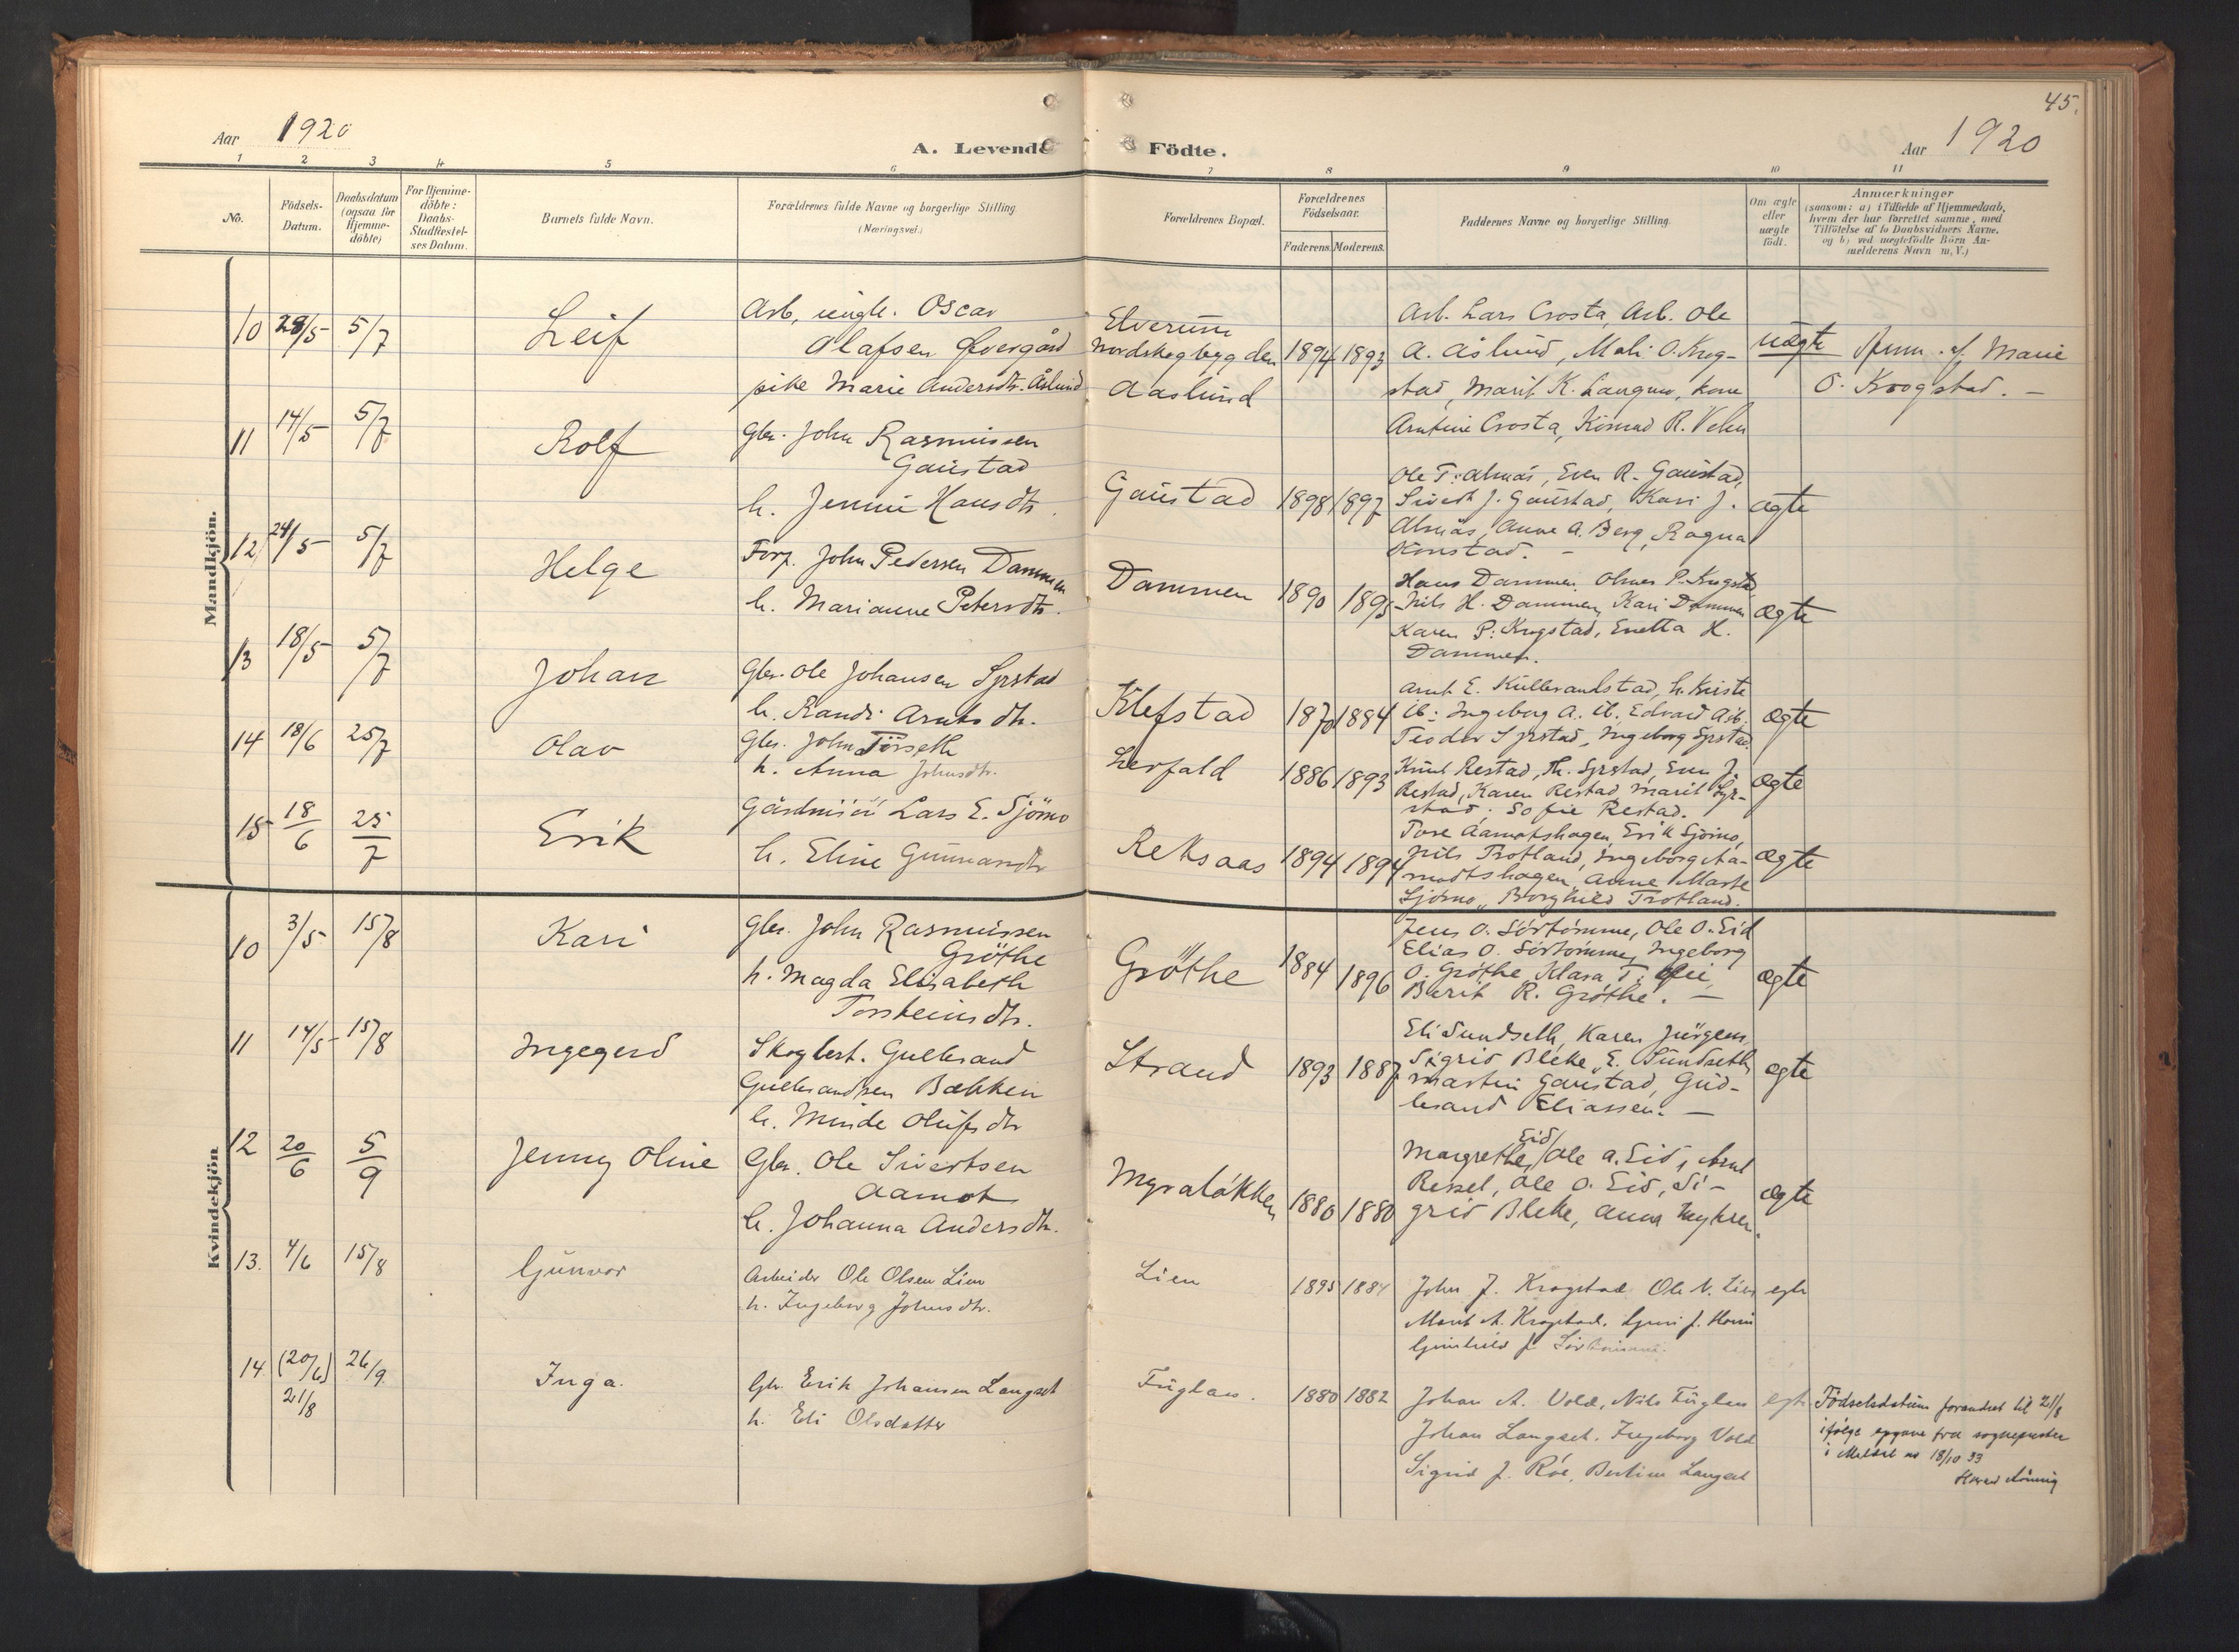 45.
Aar 1920
A. Levende Födte.
Aar 1920
1 2 3 4 5 6 7 8 9 10 11
No.
Födsels-
Datum.
Daabsdatum
(ogsaa for
Hjemme-
döbte)
For Hjemme-
döbte:
Daabs-
Stadfæstel-
ses Datum.
Barnets fulde Navn.
Forældrenes fulde Navne og borgerlige Stilling
(Næringsvei.)
Forældrenes Bopæl.
Forældrenes
Födselsaar.
Faderens. Moderens.
Faddernes Navne og borgerlige Stilling.
Om ægte
eller
uægte
födt.
Anmærkninger
(saasom: a) i Tilfælde af Hjemmedaab,
hvem der har forrettet samme, med
Tilföielse af to Daabsvidners Navne.
og b) ved uægtefödte Börn An-
melderens Navn m.V.)
Mandkjön.
10 28/5 5/7 Leif
Arb, ungk. Oscar
Olafsen Øvergård
pike Marie Andersdtr. Åslund
Elverum
Nordskogbygden
Aaslund
1894 1893
Arb. Lars Crosta, Arb. Ole
A. Åslund, Mali O. Krog-
stad, Marit K. Langmo, kone
Arntine Crosta, Konrad R.
uægte
af Marie
O. Krogstad. —
11 14/5 5/7 Rolf
Gbr. John Rasmussen
Gaustad
h. Jennie Hansdtr.
Gaustad
1898 1897
Ole T. Almås, Even R. Gaustad,
Sivert J. Gaustad, Kari J.
Almås, Anne A. Berg, Ragna
Konstad. —
ægte
12 24/5 5/7 Helge
Forp. John Pedersen Dammen
h. Marianne Petersdtr.
Dammen
1890 1895
Hans Dammen, Olmer P. Krogstad
Nils H. Dammen, Kari Dammen
Karen P. Krogstad, Enetta H.
Dammen.
ægte
13 18/5 5/7 Johan
Gbr. Ole Johansen Syrstad
h. Randi Arntsdtr.
Klefstad
1870 1884
Arnt E. Kullerandstad, h. Kirste
ib: Ingeborg A. ib, Edvard A. ib.
Teodor Syrstad, Ingeborg Syrstad.
ægte
14 18/6 25/7 Olav
Gbr. John Törseth
h. Anna Johnsdtr.
Lerfald
1886 1893
Knut Restad, Th. Syrstad, Even J.
Restad, Karen Restad Marit Syr-
stad, Sofie Restad.
ægte
15 18/6 25/7 Erik
Lars E. Sjömo
h. Eline Gunnarsdtr
Reksaas
1894 1894
Tore Aamotshagen, Erik Sjömo,
Nils Trotland, Ingeborg Aa-
modtshagen, Anne Marte
Sjömo, Borghild Trotland.
ægte
Kvindekjön
10 3/5 15/8 Kari
Gbr. John Rasmussen
Gröthe
h. Magda Elisabeth
Torsteinsdtr.
Gröthe
1884 1896
Jens O. Sörtömme, Ole O. Eid
Elias O. Sörtömme, Ingeborg
O. Gröthe, Klara T.
Berit R. Gröthe. —
ægte
11 14/5 15/8 Ingegerd
Skogbest. Gulbrand
Gulbrandsen Bækken
h. Minde Olufsdtr
Strand
1893 1887
Eli Sundseth, Karen Jürgens,
Sigrid Bleke, E. Sundseth
Martin Gaustad, Gud-
brand Eliassen. —
ægte
12 20/6 5/9 Jenny Oline
Gbr. Ole Sivertsen
Aamot
h. Johanna Andersdtr.
Myraløkken
1880 1880
Margrethe Eid, Ole A. Eid, Arnt
Ressel, Ole O. Eid, Si-
grid Bleke, Anna
ægte
13. 4/6 15/8 Gunvor
Arbeider Ole Olsen Lien
h. Ingeborg Johnsdtr.
Lien
1895 1884
John J. Krogstad Ole N. Lien
Marit A. Krogstad.
Gunhild J.
egte
14 (20/6) 21/8 26/9. Inga.
Gbr. Erik Johansen Langset
h. Eli Olsdatter
Fuglaas.
1880 1882
Johan A. Vold, Nils Fuglaas
Johan Langset. Ingeborg Vold
Sigrid J. Röe, Bertine Langset
egte
Födselsdatum forandret til 21/8
ifölge opgave fra sogneprsten
i Meldal av 18/10 33